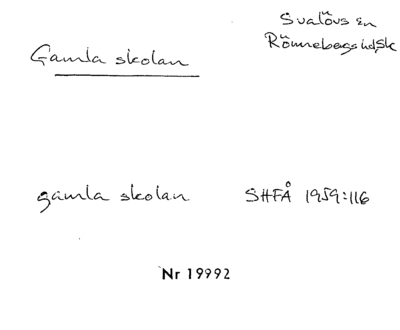 Svalövs sn
Rönnebergs hd, Sk
Gamla skolan
gamla skolan SHFÅ 1959:116
Nr 19992